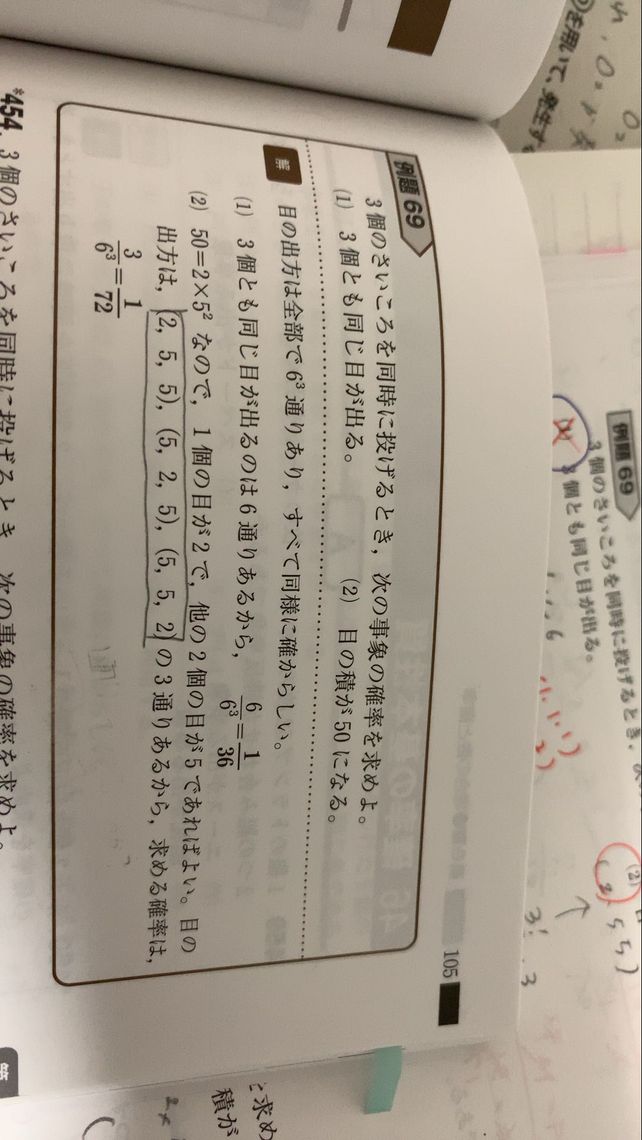 105
例題 69
3個のさいころを同時に投げるとき，次の事象の確率を求めよ。
(1) 3個とも同じ目が出る。 (2) 目の積が50になる。
解
目の出方は全部で 6³ 通りあり，すべて同様に確からしい。
(1) 3個とも同じ目が出るのは6通りあるから， 6/6³=1/36
(2) 50=2×5² なので，1個の目が2で，他の2個の目が5であればよい。目の
出方は，(2, 5, 5), (5, 2, 5), (5, 5, 2) の3通りあるから，求める確率は，
3/6³=1/72
*454. 3個のさいころを同時に投げるとき，次の事象の確率を求めよ。
例題 69
3個のさいころを同時に投げるとき，
個とも同じ目が出る。
(2)
3!
3
を用いて，
求め
積が